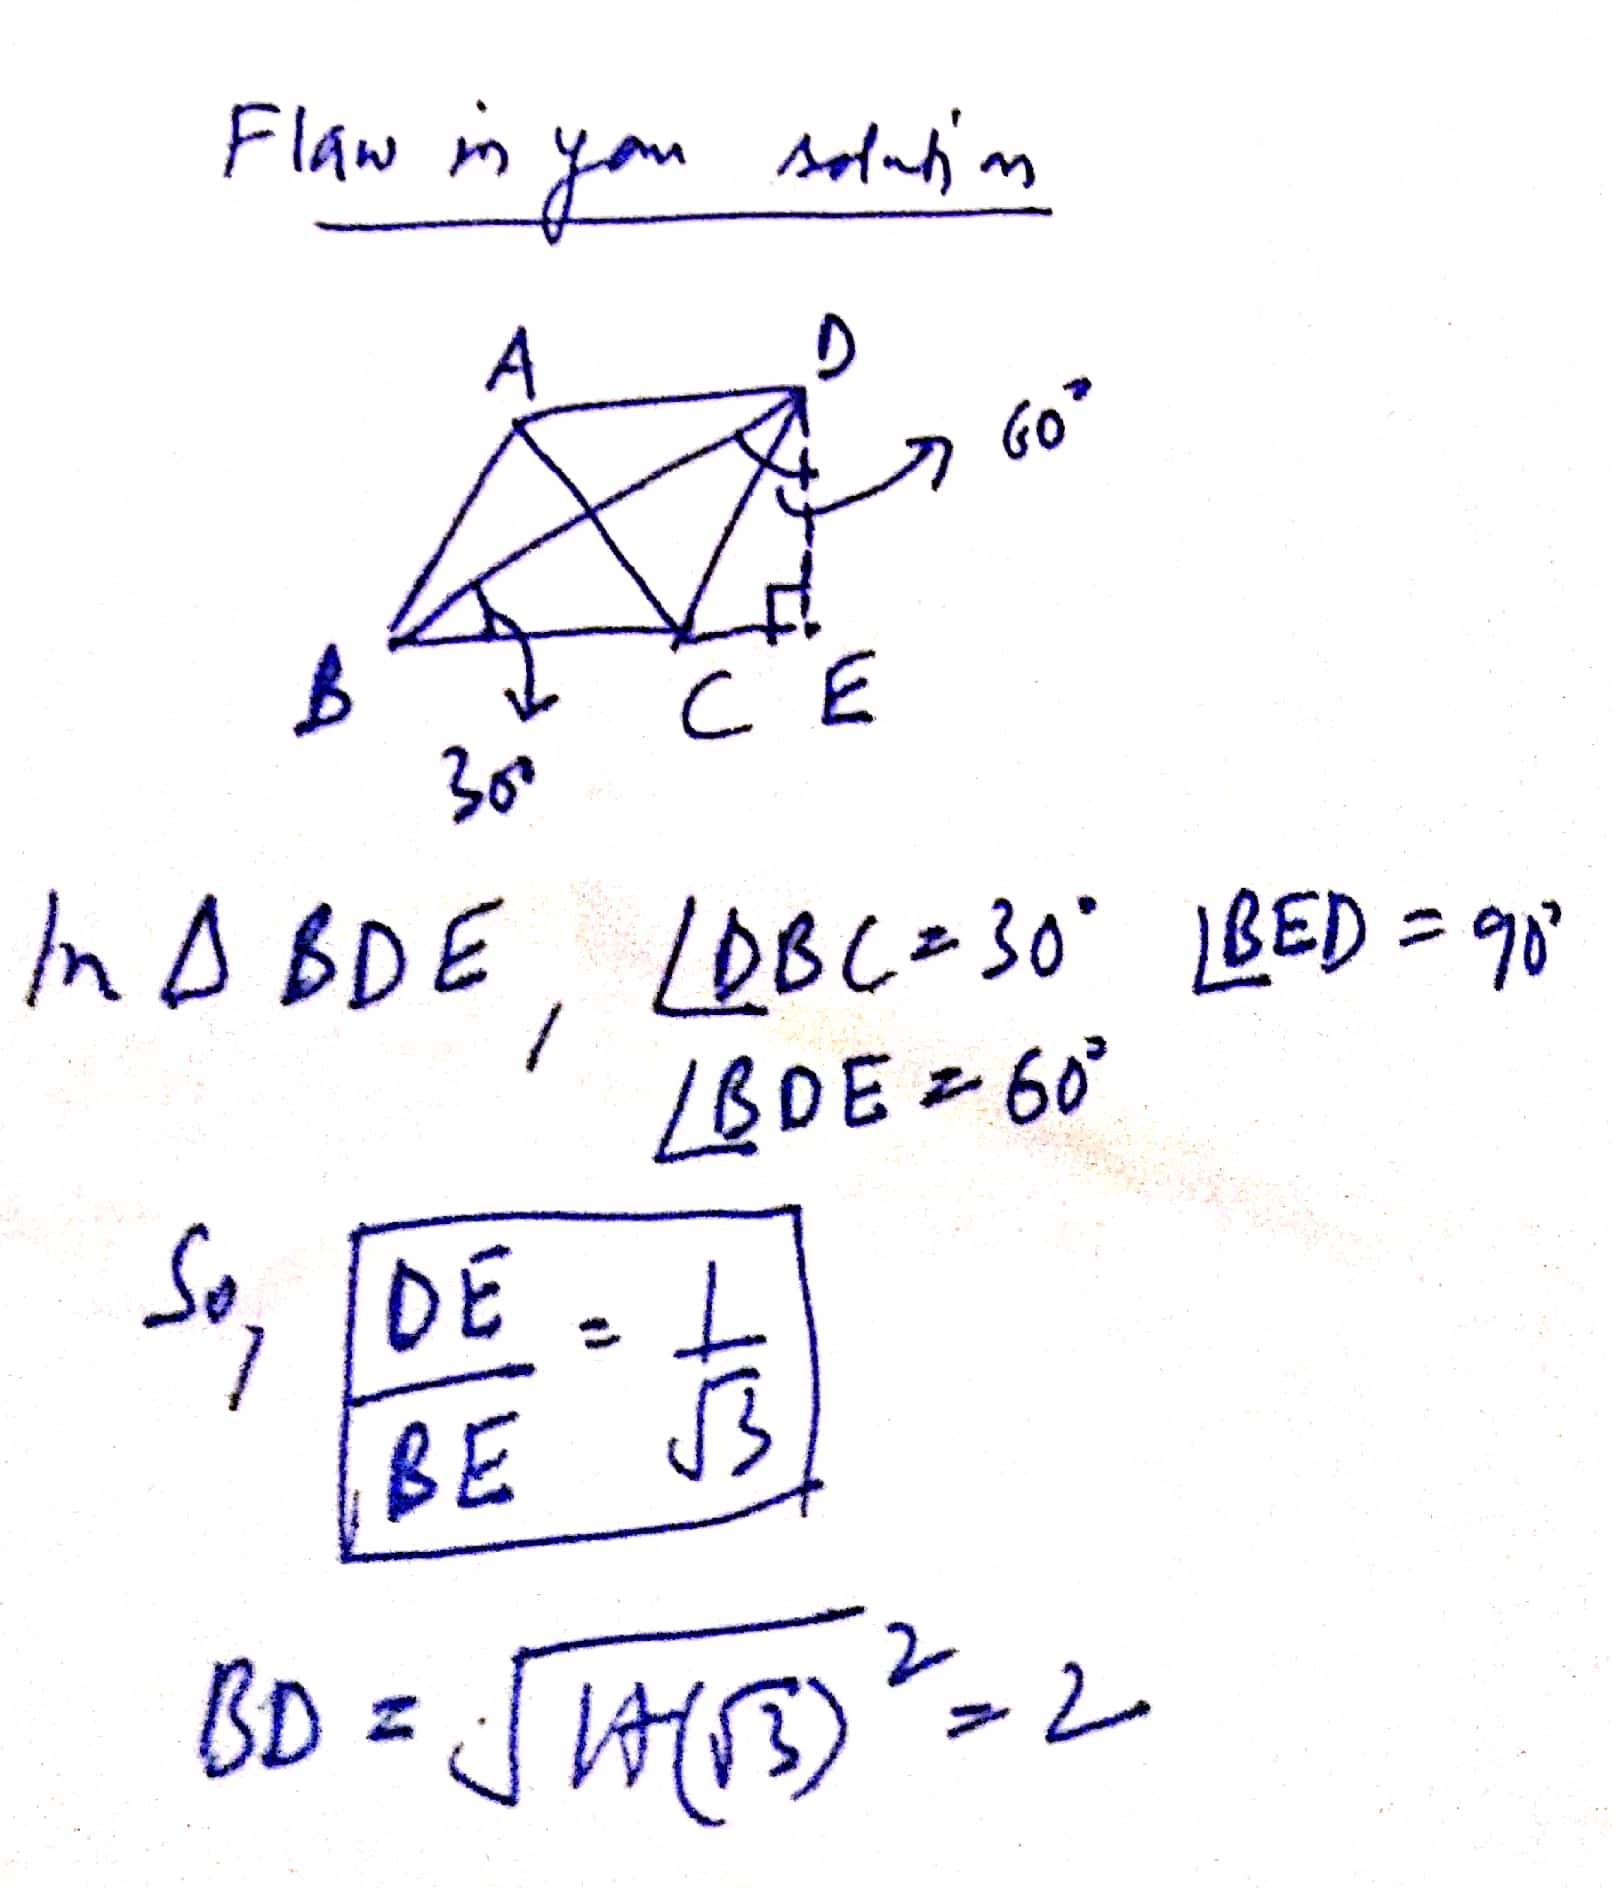 Flaw in your solution
A D
60°
B C E
30°
In Δ BDE, ∠DBC = 30° ∠BED = 90°
∠BDE = 60°
So, DE/BE = 1/√3
BD = √1+(√3)² = 2